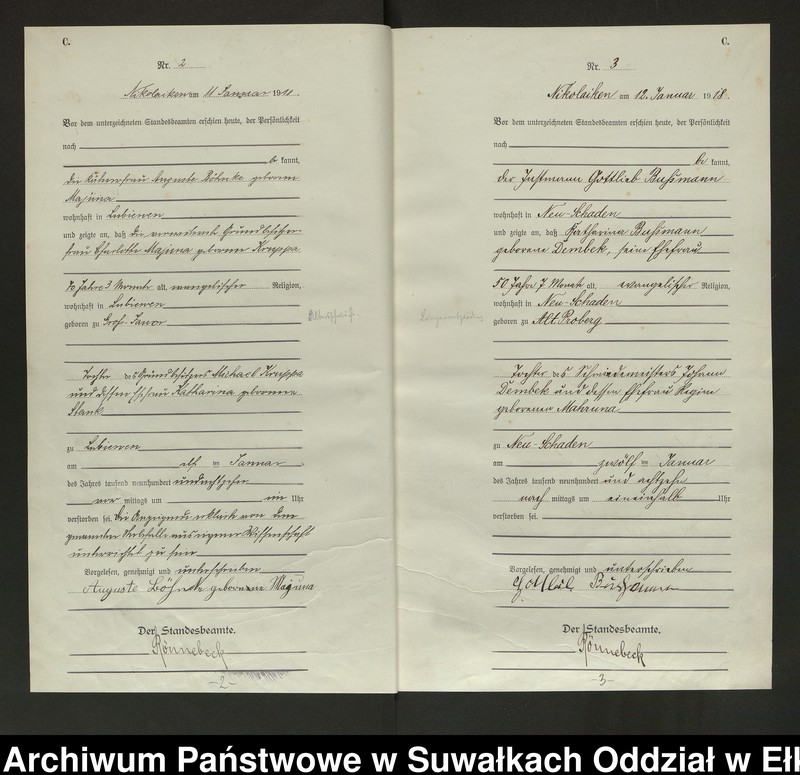 C.
Nr. 2
Nikolaiken am 11 Januar 1918.
Vor dem unterzeichneten Standesbeamten erschien heute, der Persönlichkeit
nach
be kannt,
die Käthnerfrau Auguste Böhnke geborene
Majuna
wohnhaft in Lubiewen
und zeigte an, daß die verwitwete Grundbesitzer-
frau Charlotte Majuna geborene Kruppa
70 Jahre 3 Monate alt, evangelischer Religion,
wohnhaft in Lubiewen
geboren zu Groß-Jauer
Tochter des Grundbesitzers Michael Kruppa
und dessen Ehefrau Katharina geborenen
zu Lubiewen
am elf ten Januar
des Jahres tausend neunhundert undachtzehn
vor mittags um ein Uhr
verstorben sei. Die Anzeigende erklärte von dem
genannten Sterbefalle aus eigener Wissenschaft
unterrichtet zu sein
Vorgelesen, genehmigt und unterschrieben
Auguste Böhnke geborene Majuna
Der Standesbeamte.
Rönnebeck
-2-
C.
Nr. 3
Nikolaiken am 12. Januar 1918.
Vor dem unterzeichneten Standesbeamten erschien heute, der Persönlichkeit
nach
be kannt,
der Instmann Gottlieb Bussmann
wohnhaft in Neu-Schaden
und zeigte an, daß Katharina Bussmann
geborene Dembek, seine Ehefrau
50 Jahre 7 Monate alt, evangelischer Religion,
wohnhaft in Neu-Schaden
geboren zu Alt Proberg
Tochter des Schmiedemeisters Johann
Dembek und dessen Ehefrau Regine
geborenen Mahruna
zu Neu-Schaden
am zwölf ten Januar
des Jahres tausend neunhundert und achtzehn
nach mittags um eineinhalb Uhr
verstorben sei.
Vorgelesen, genehmigt und unterschrieben
Gottlieb Bussmann
Der Standesbeamte.
Rönnebeck
-3-
Archiwum Państwowe w Suwałkach Oddział w Ełk